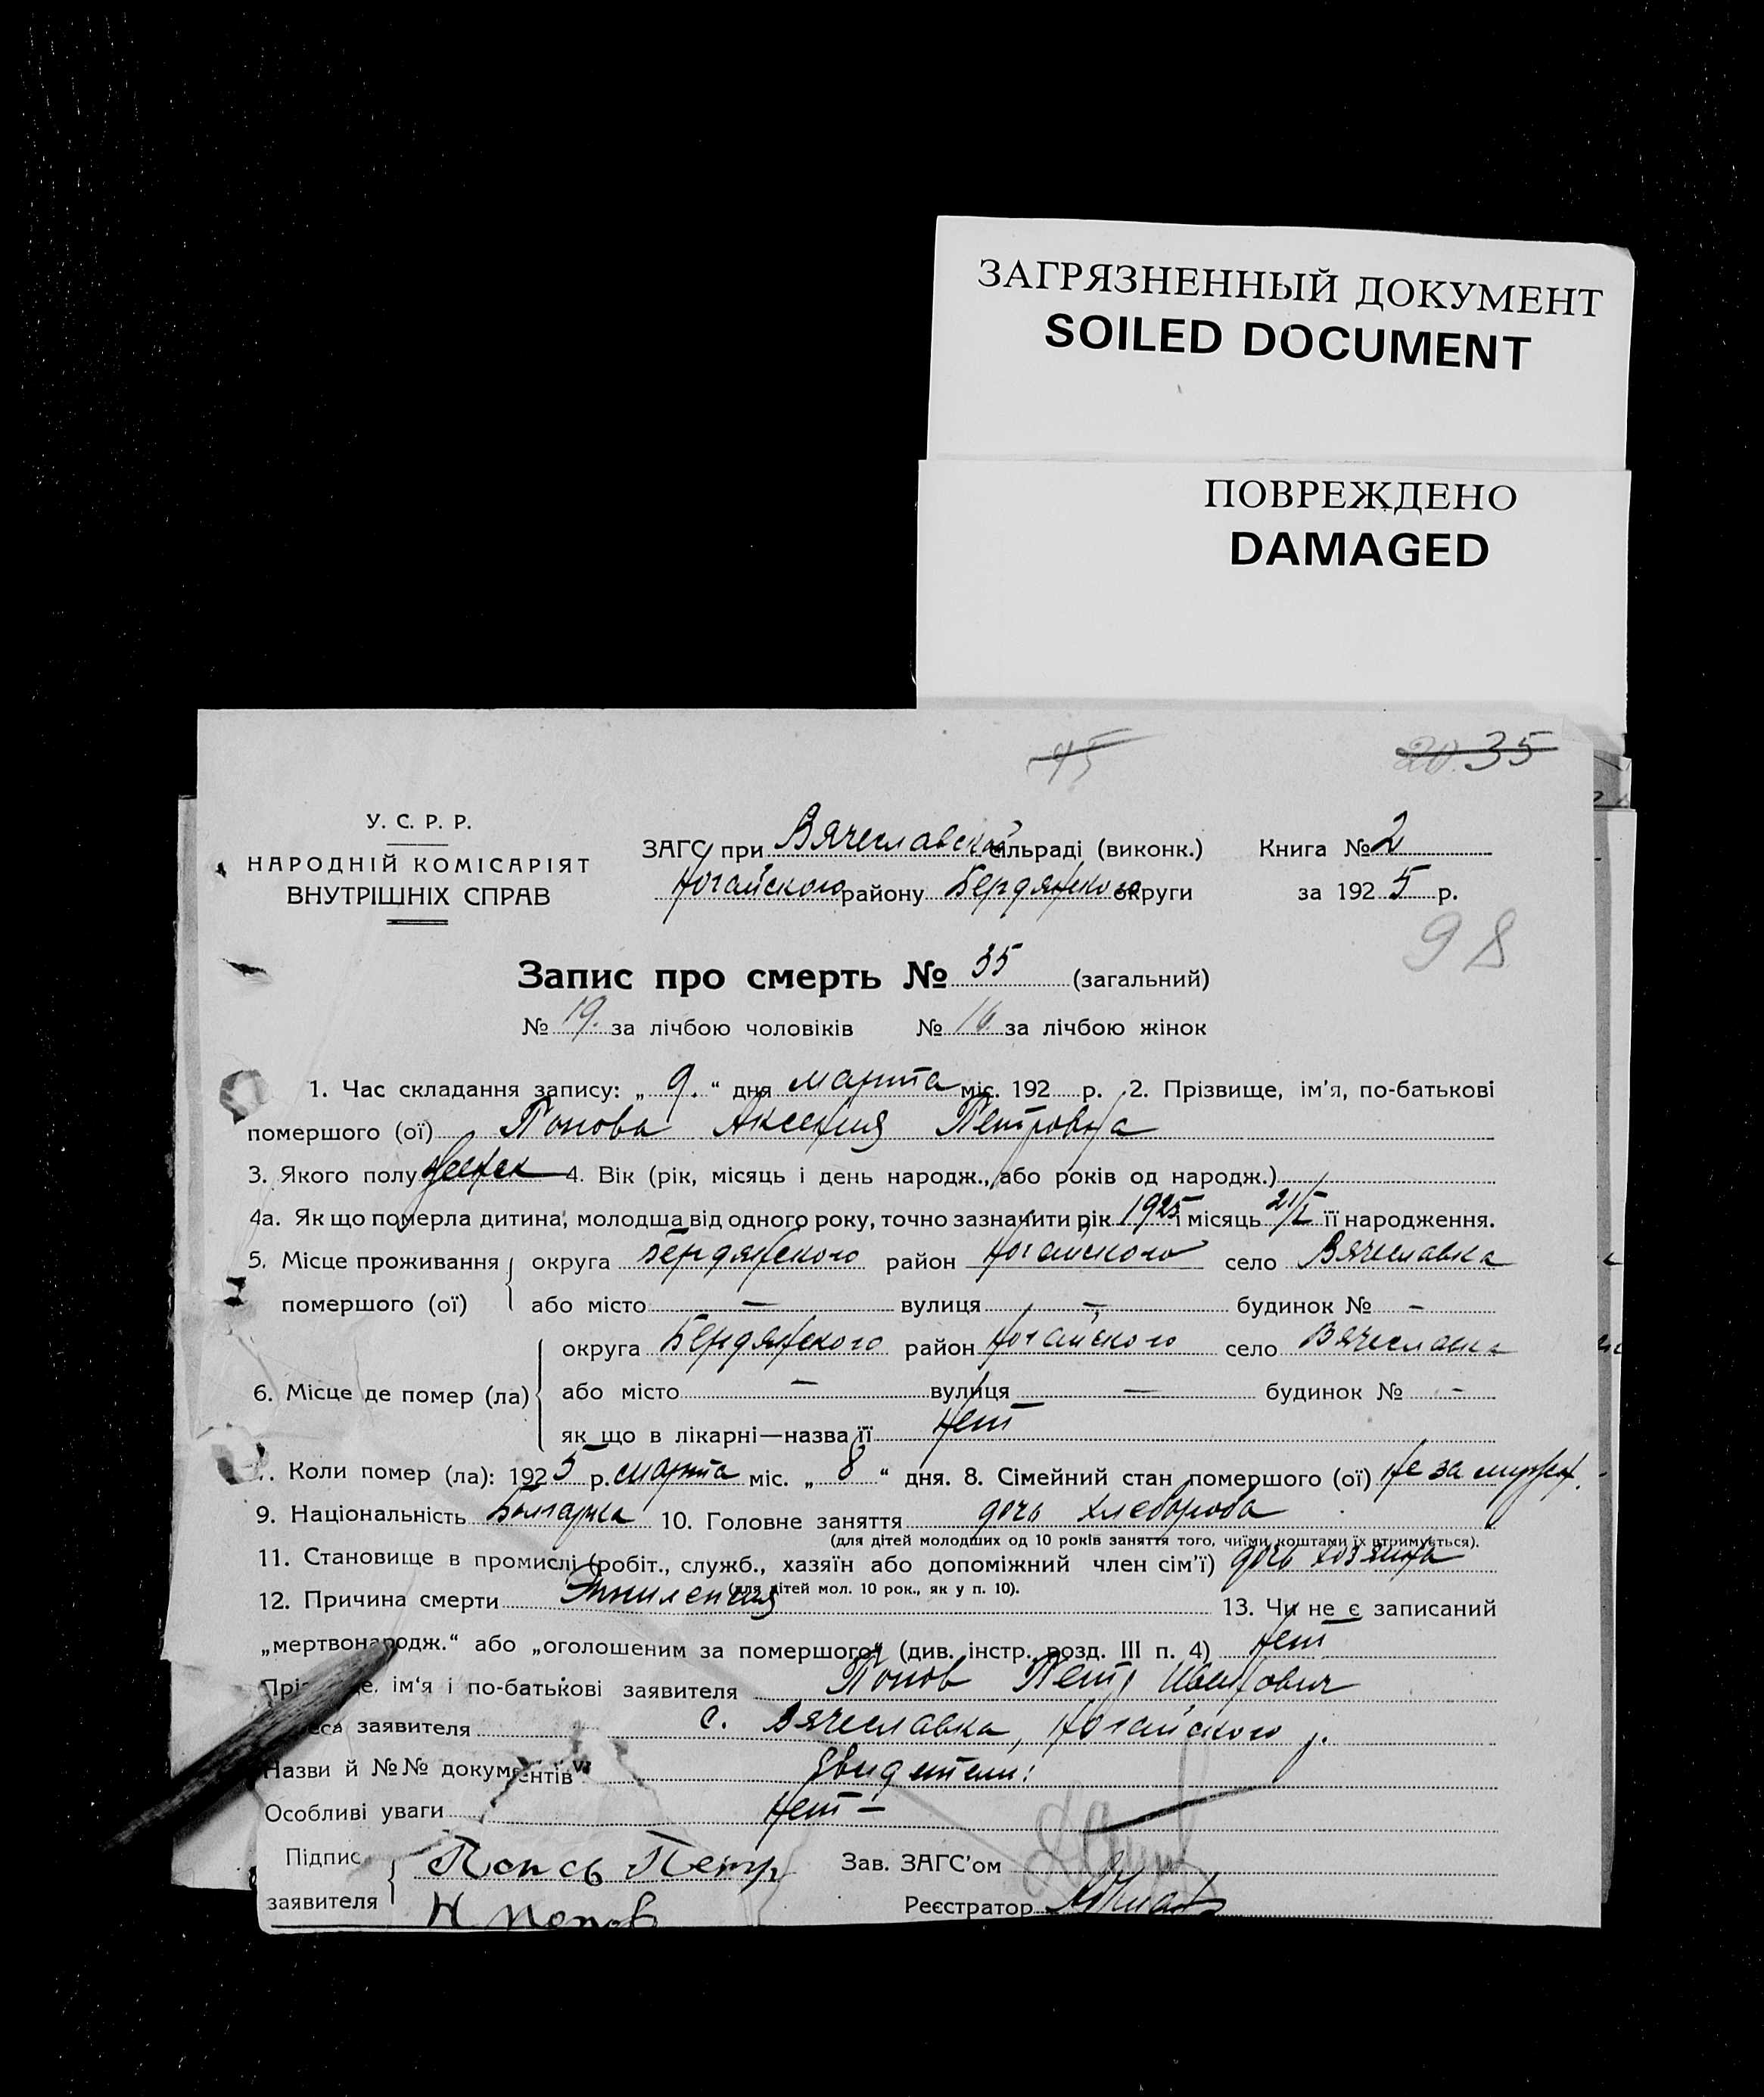 ЗАГРЯЗНЕННЫЙ ДОКУМЕНТ
SOILED DOCUMENT
ПОВРЕЖДЕНО
DAMAGED
45
20 35
У. С. Р. Р.
НАРОДНІЙ КОМІСАРІЯТ
ВНУТРІШНІХ СПРАВ
ЗАГС при Вячеславской сільраді (виконк.) Книга № 2
Ногайского району Бердянского округи за 1925 р.
98
Запис про смерть № 35 (загальний)
№ 19. за лічбою чоловіків № 16. за лічбою жінок
1. Час складання запису: „ 9. “ дня марта міс. 192 р. 2. Прізвище, ім'я, по-батькові
помершого (ої) Попова Аксения Петровна
3. Якого полу женск 4. Вік (рік, місяць і день народж., або років од народж.)
4а. Як що померла дитина, молодша від одного року, точно зазначити рік 1925 і місяць 21/I її народження.
5. Місце проживання округа Бердянского район Ногайского село Вячеславка
помершого (ої) або місто — вулиця — будинок № -
округа Бердянского район Ногайского село Вячеславка
6. Місце де помер (ла) або місто — вулиця — будинок № -
як що в лікарні—назва її Нет
7. Коли помер (ла): 1925 р. марта міс. „ 8 “ дня. 8. Сімейний стан помершого (ої) не за мужем.
9. Національність Болгарка 10. Головне заняття дочь хлебороба
(для дітей молодших од 10 років заняття того, чиїми коштами їх втримується).
11. Становище в промислі (робіт., служб., хазяїн або допоміжний член сім'ї) дочь хозяина
(для дітей мол. 10 рок., як у п. 10).
12. Причина смерти 13. Чи не є записаний
„мертвонародж.“ або „оголошеним за помершого“ (див. інстр. розд. III п. 4) Нет
ім'я і по-батькові заявителя Попов Петр Иванович
заявителя с. Вячеславка, Ногайского р.
Назви й №№ документів Свидетели:
Особливі уваги Нет —
Підпис Попов Петр Зав. ЗАГС'ом
заявителя Н Попов Реєстратор